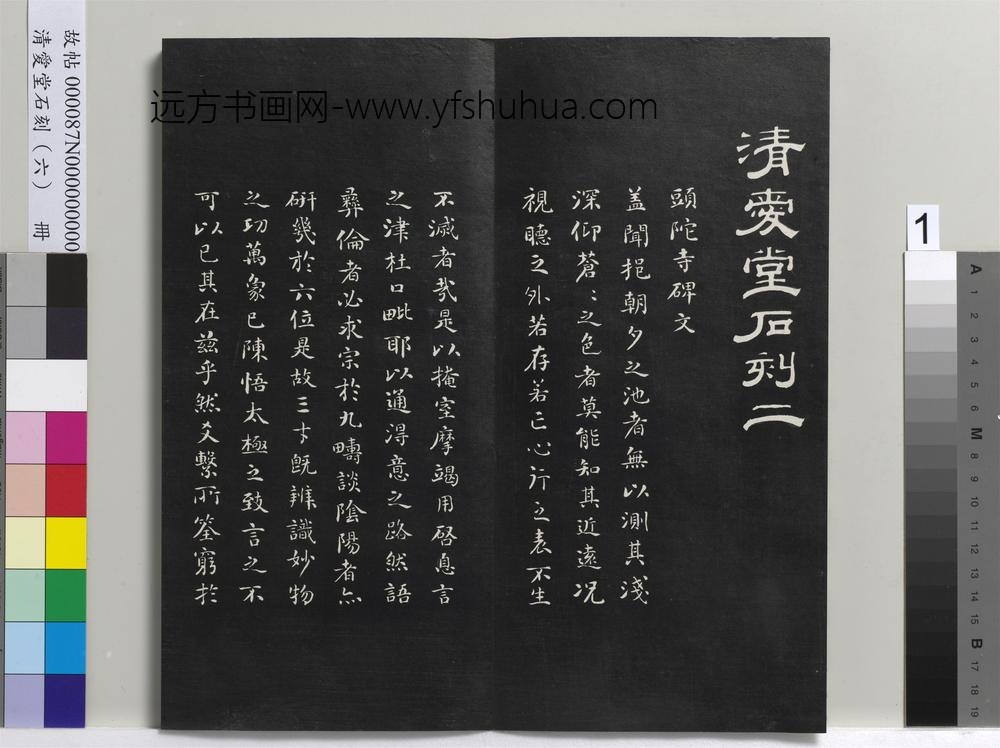 清愛堂石刻二
頭陀寺碑文
盖聞挹朝夕之池者無以測其淺
深仰蒼〻之色者莫能知其近遠况
視聽之外若存若亡心行之表不生
不滅者哉是以掩室摩竭用啓息言
之津杜口毗耶以通得意之路然語
彝倫者必求宗於九疇談陰陽者亦
研幾於六位是故三才既辨識妙物
之功萬象已陳悟太極之致言之不
可以已其在兹乎然爻繫所筌窮於
远方书画网-www.yfshuhua.com
故帖 000087N000000000
清愛堂石刻（六） 冊
1
A
1
2
3
4
5
6
M
8
9
10
11
12
13
14
15
B
17
18
19